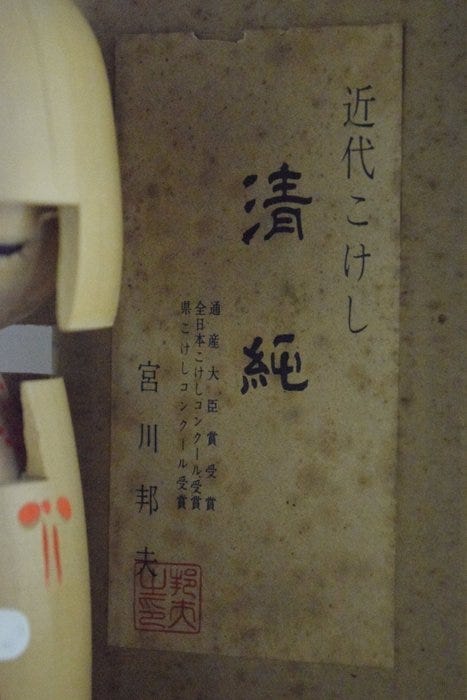 近代こけし
清純
通産大臣賞受賞
全日本こけしコンクール受賞
県こけしコンクール受賞
宮川邦夫